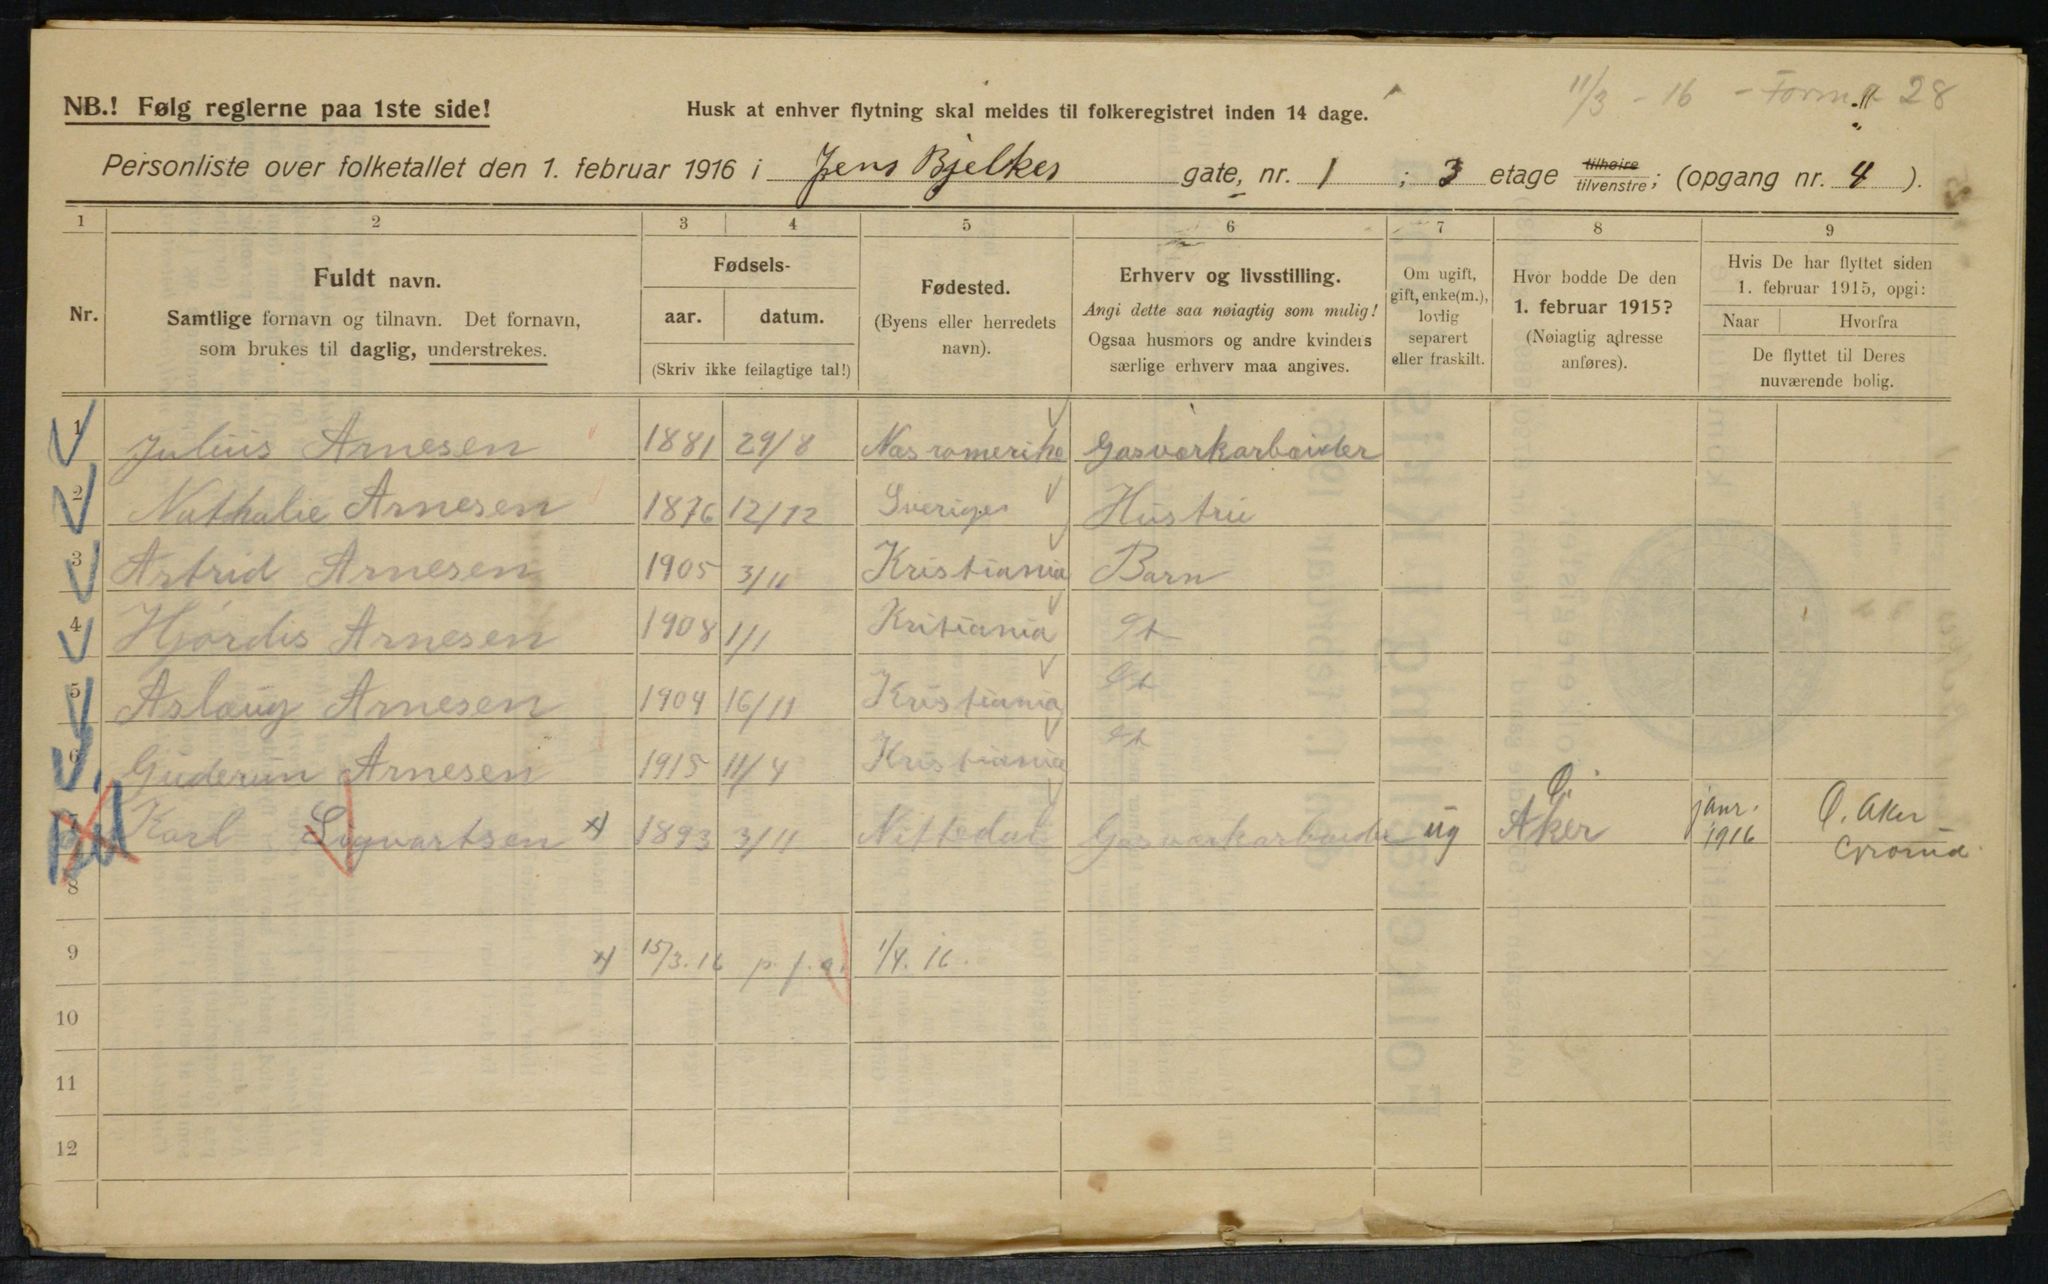 11/3 - 16 - Form 28
NB.! Følg reglerne paa 1ste side!
Husk at enhver flytning skal meldes til folkeregistret inden 14 dage.
Personliste over folketallet den 1. februar 1916 i Jens Bjelkes gate, nr. 1 ; 3 etage tilhøire tilvenstre; (opgang nr. 4 ).
1 2 3 4 5 6 7 8 9
Nr.
Fuldt navn.
Samtlige fornavn og tilnavn. Det fornavn,
som brukes til daglig, understrekes.
Fødsels-
aar. datum.
(Skriv ikke feilagtige tal!)
Fødested.
(Byens eller herredets
navn).
Erhverv og livsstilling.
Angi dette saa nøiagtig som mulig!
Ogsaa husmors og andre kvinders
særlige erhverv maa angives.
Om ugift,
gift, enke(m.),
lovlig
separert
eller fraskilt.
Hvor bodde De den
1. februar 1915?
(Nøiagtig adresse
anføres).
Hvis De har flyttet siden
1. februar 1915, opgi:
Naar Hvorfra
De flyttet til Deres
nuværende bolig.
1 Julius Arnesen 1881 29/8 Næs romerike Gasværkarbeider
2 Nathalie Arnesen 1876 12/12 Sverige Hustru
3 Astrid Arnesen 1905 3/11 Kristiania Barn
4 Hjørdis Arnesen 1908 1/1 Kritiania
5 Aslaug Arnesen 1904 16/11 Kristiania
6 Guderun Arnesen 1915 11/4 Kristiania
7 Karl Sigvartsen x) 1893 3/11 Nittedal Gasværkarbeider ug Ø. Aker janr. 1916 Ø. Aker Grorud
8
9 x) 15/3.16 p. f. a. 1/4. 16.
10
11
12